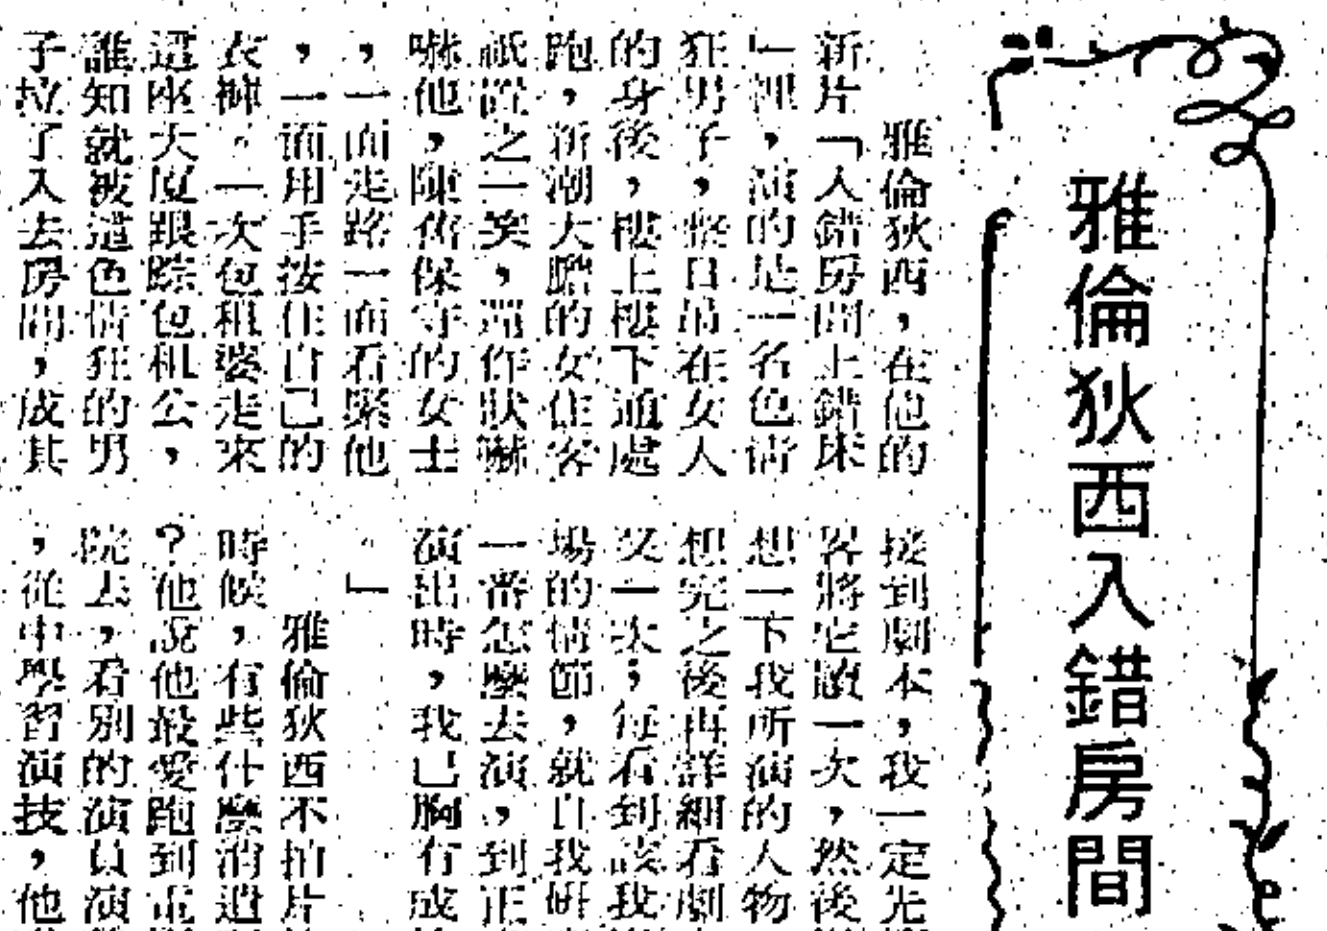 雅倫狄西入錯房間
雅倫狄西,在他的
新片「入錯房間上錯床
」裡,演的是一名色情
狂男子,整日吊在女人
的身後,樓上樓下通處
跑,新潮大膽的女住客
祇置之一笑,作狀嚇
嚇他,陳舊保守的女士
,一面走路一面看緊他
,一面用手按住自己的
衣褲。一次包租婆走來
這座大厦跟踪包租公,
誰知就被這色情狂的男
子拉了入去房間,成其
接到劇本,我一定先
畧將它讀一次,然後
想一下我所演的人物
想完之後再詳細看劇
又一次;每看到該我
場的情節,就自我研
一番怎麼去演,到正
演出時,我已胸有成
。」
雅倫狄西不拍片
時候,有些什麼消遣
?他說他最愛跑到電
院去,看別的演員演
,從中學習演技,他